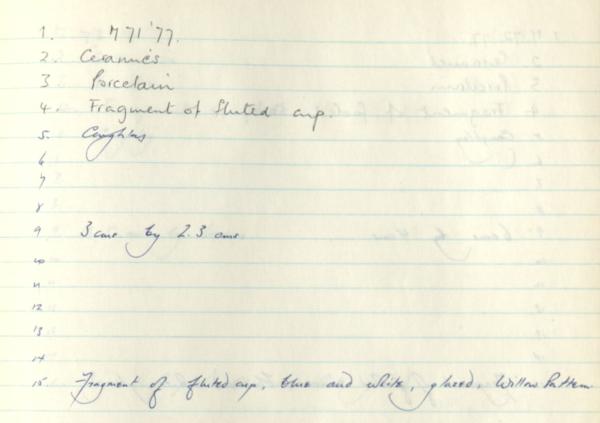 1. M 71 '77.
2. Ceramics
3 Porcelain
4. Fragment of fluted cup.
5.
6
7
8
9 3 cms by 2.3 cms
10
11
12
13
14
15. Fragment of fluted cup, blue and white, glazed, Willow Pattern